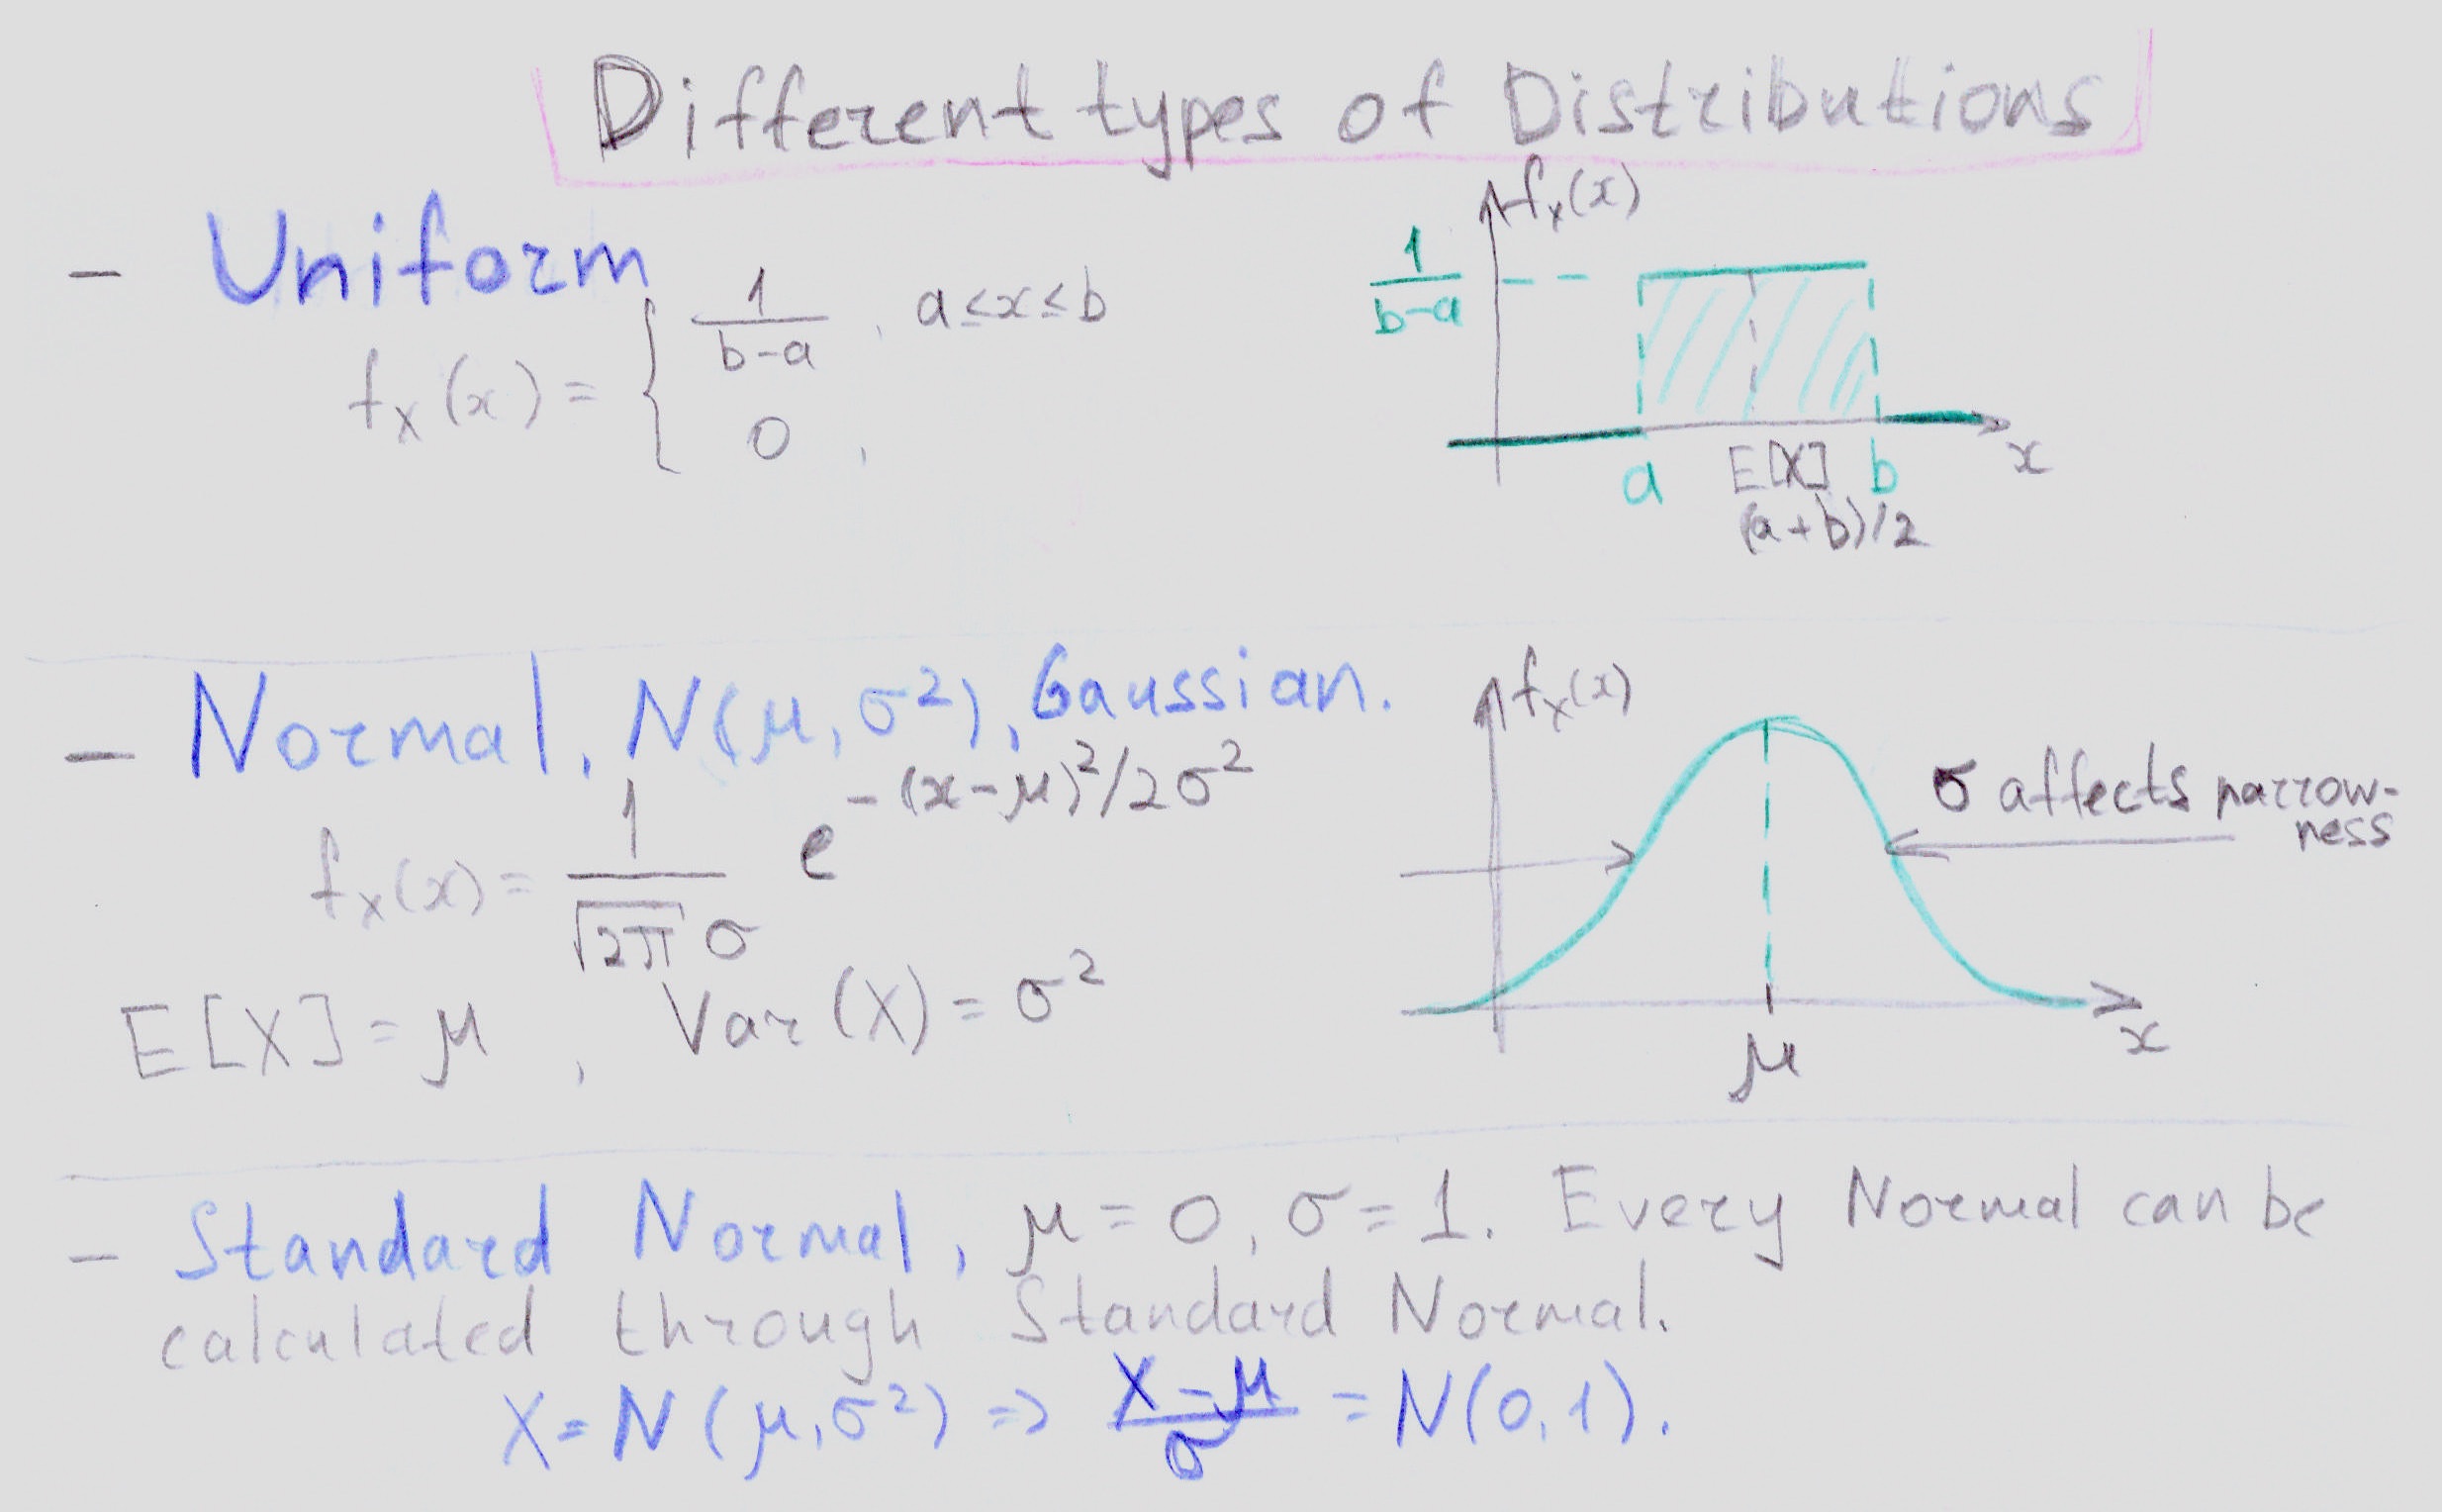 Different types of Distributions
- Uniform
f_X(x) = { 1/(b-a) , a≤x≤b
0 ,
f_X(x)
1/(b-a)
a E[X] b x
(a+b)/2
- Normal, N(μ, σ²), Gaussian.
f_X(x) = 1/(√2π σ) e^(-(x-μ)²/2σ²)
E[X] = μ , Var(X) = σ²
f_X(x)
σ affects narrow-
ness
μ x
- Standard Normal, μ = 0, σ = 1. Every Normal can be
calculated through Standard Normal.
X = N(μ, σ²) ⇒ (X-μ)/σ = N(0,1).